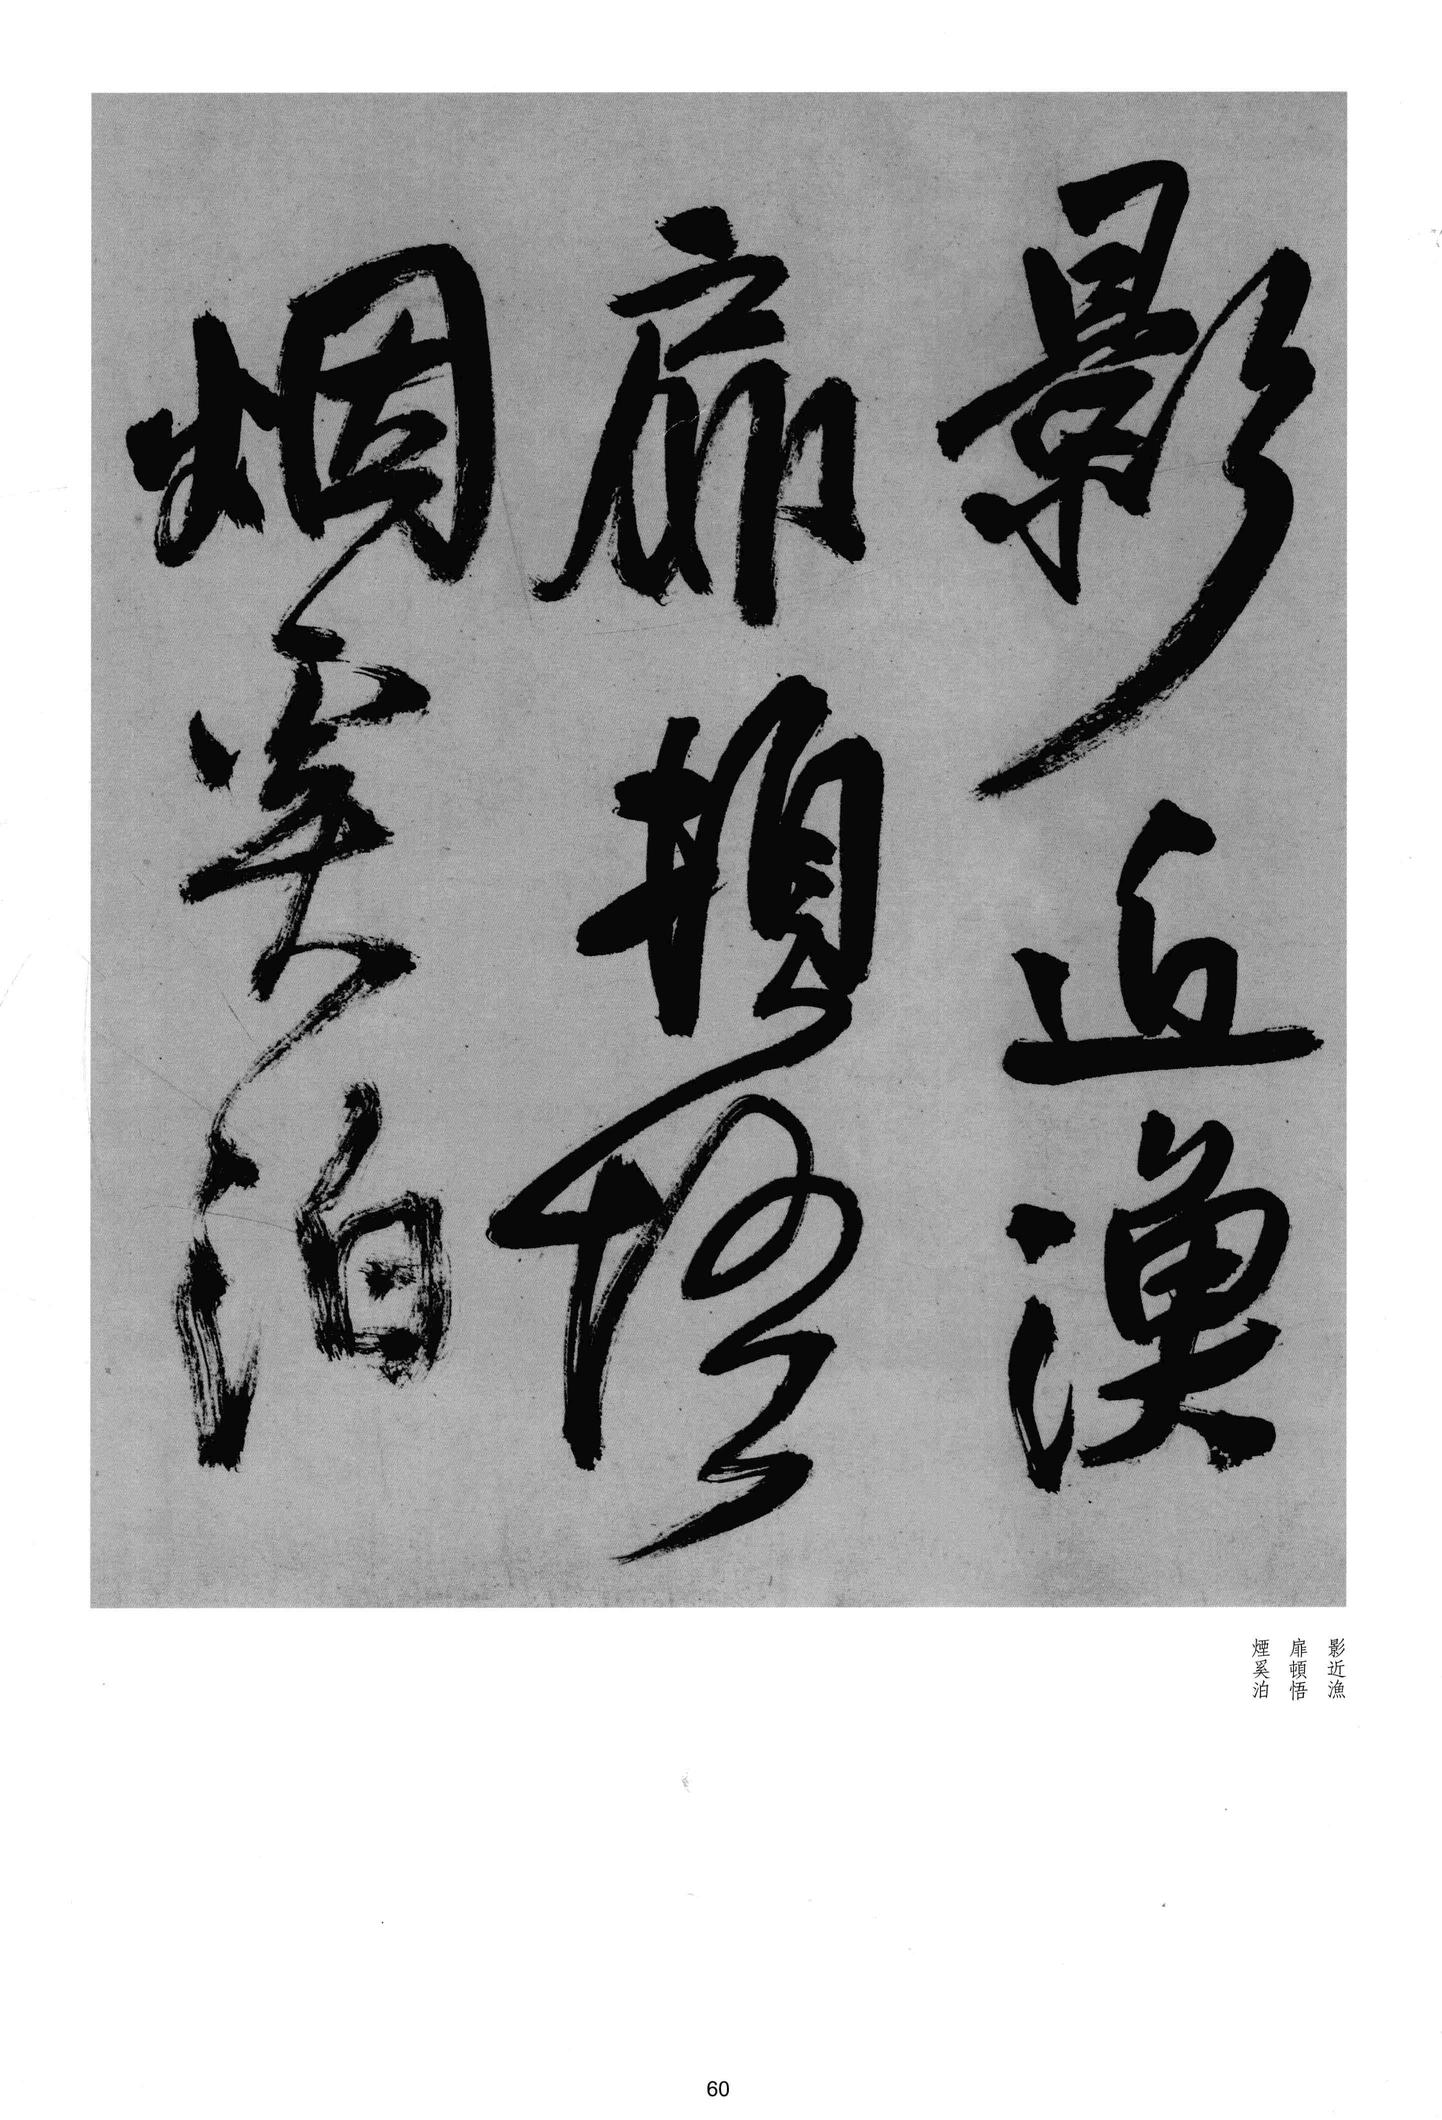 影近漁
扉頓悟
烟奚泊
影近漁
扉頓悟
煙奚泊
60